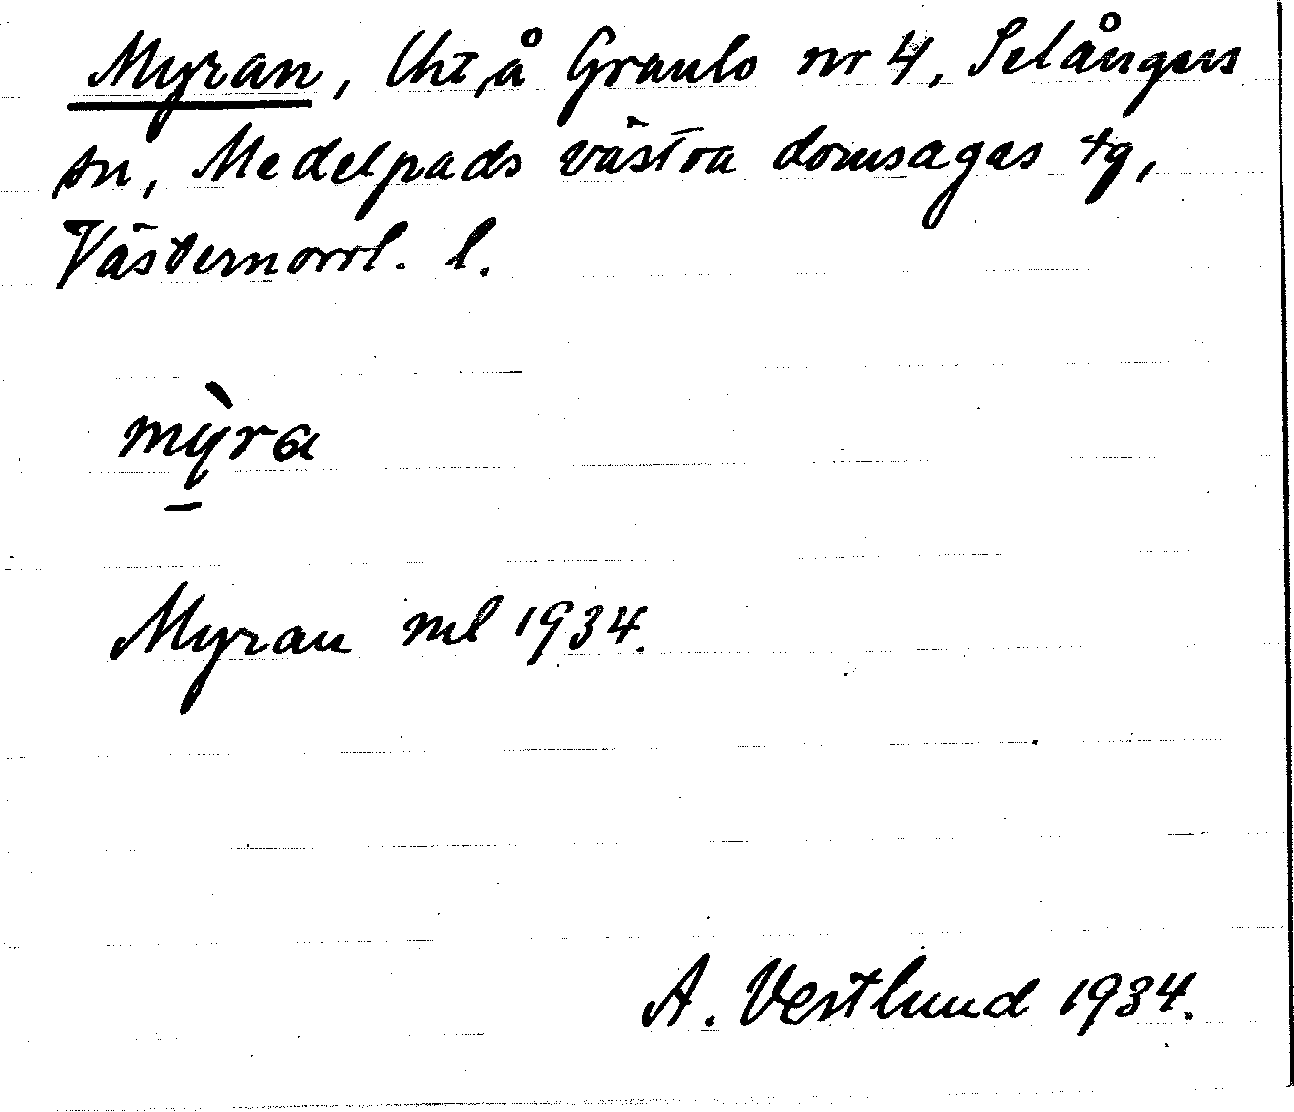 Myran, lht, å Granlo nr 4, Selångers
sn, Medelpads västra domsagas tg,
Västernorrl. l.
mỳra
Myran ml 1934.
A. Vestlund 1934.